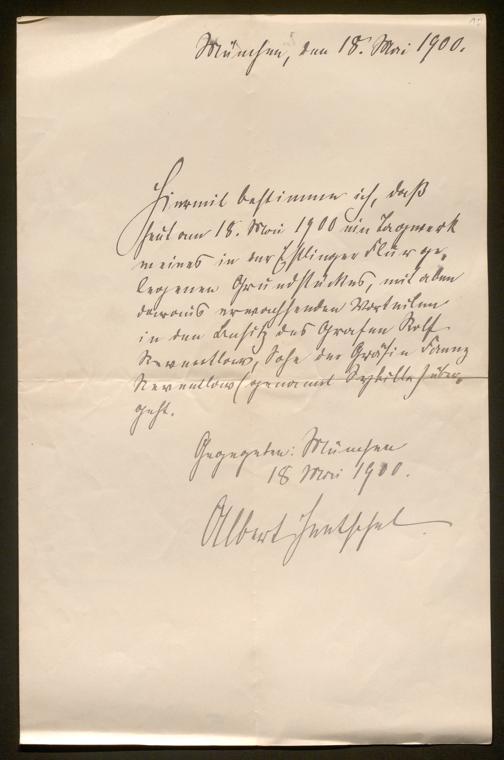 München, den 18. Mai 1900.
Hiermit bestimme ich, daß
heut am 18. Mai 1900 ein Tagwerk
meines in der Eßlinger Flur ge-
legenen Grundstückes, mit allen
daraus erwachsenden Vorteilen
in den Besitz des Grafen Rolf
Reventlow, Sohn der Gräfin Fanny
Reventlow (genannt Sybille) über-
geht.
Gegegeben: München
18 Mai 1900.
Albert Hentschel